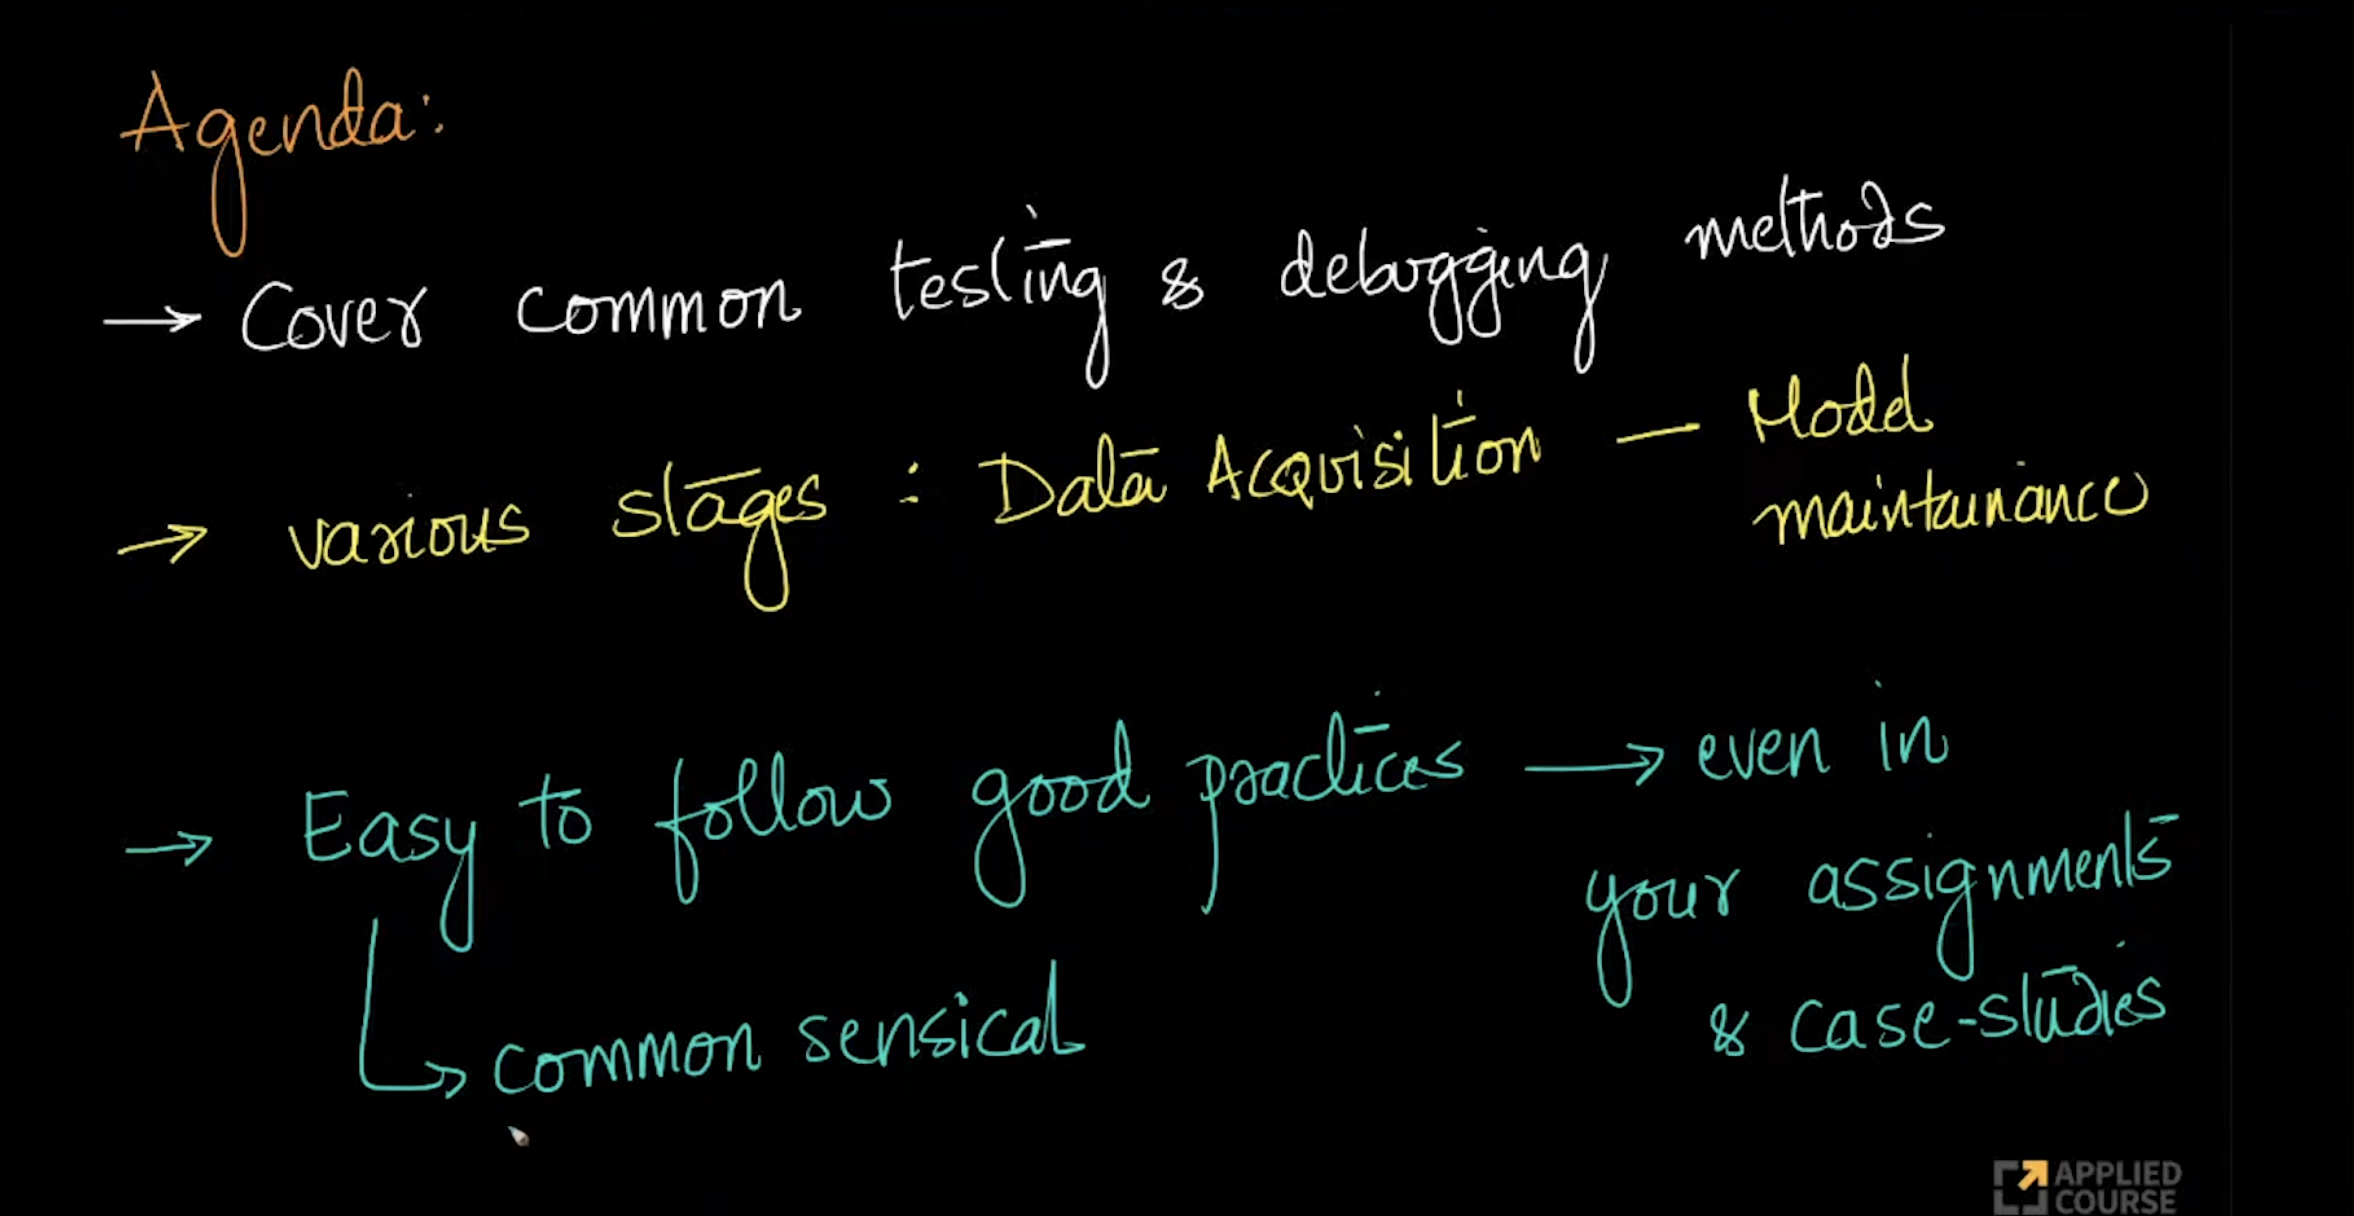 Agenda:
→ Cover common testing & debugging methods
→ various stages : Data Acquisition — Model
maintainance
→ Easy to follow good practices → even in
your assignments
& case-studies
↳ common sensical
APPLIED
COURSE